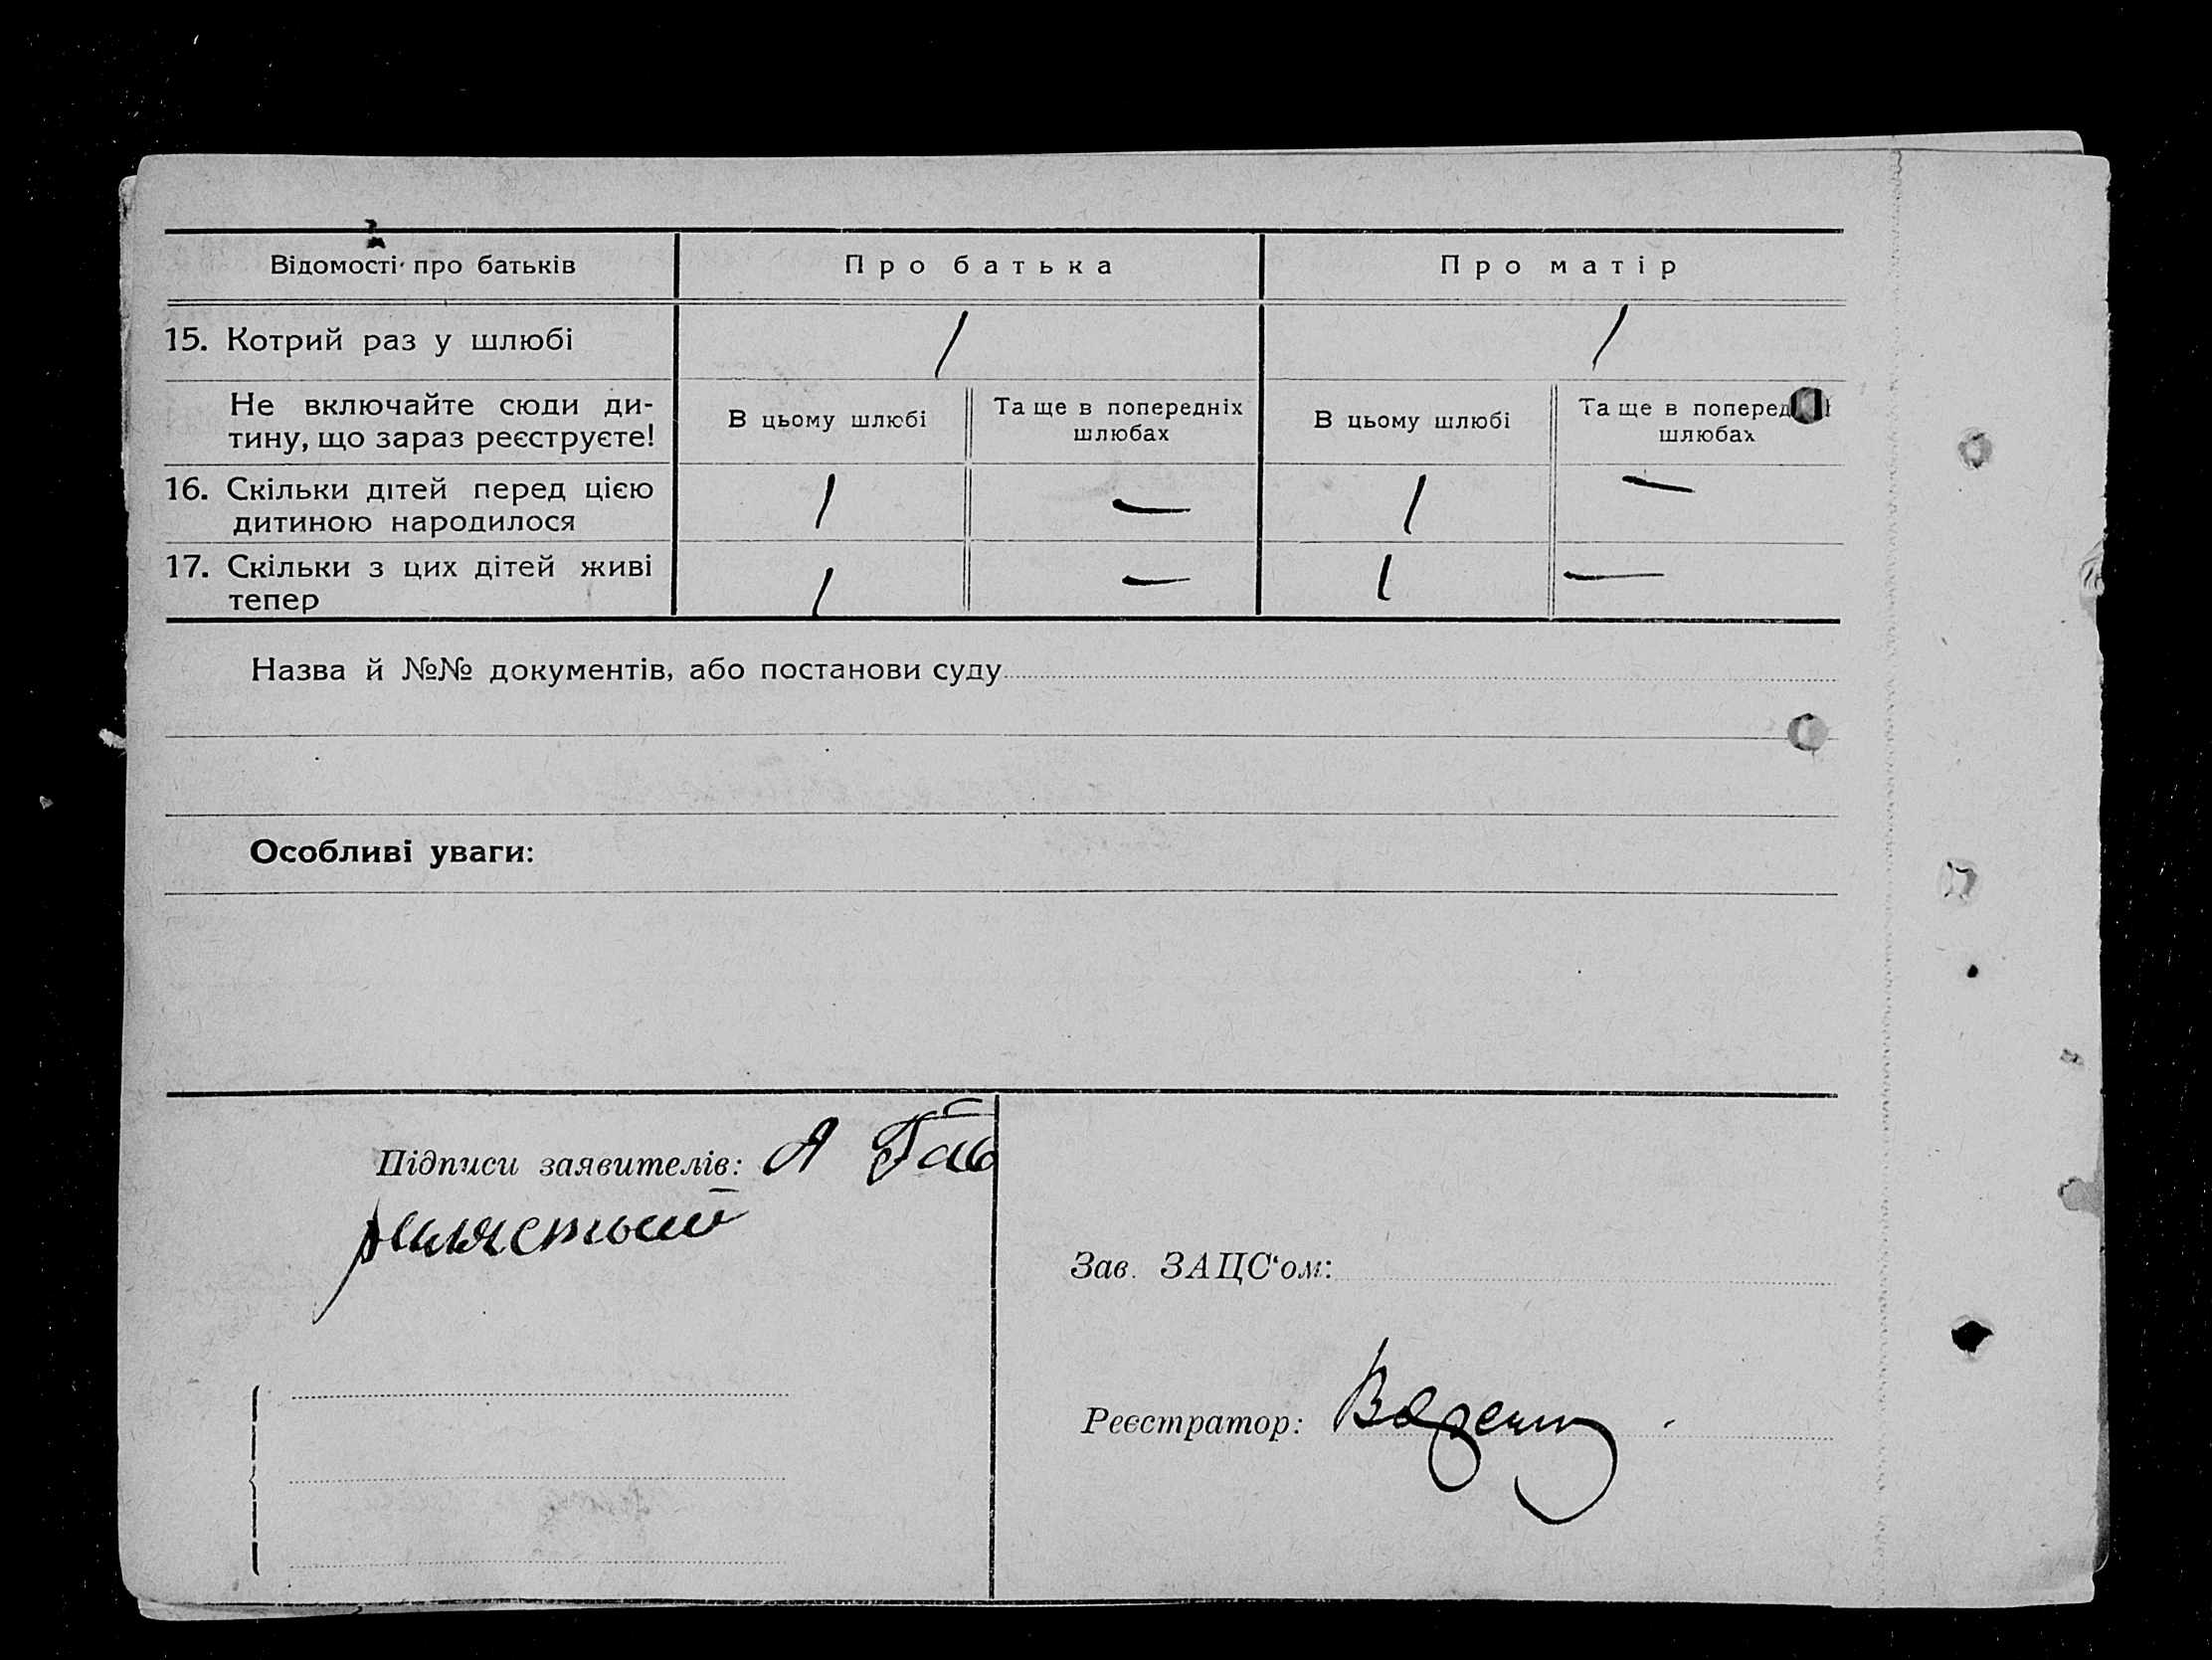 Відомості про батьків
Про батька
Про матір
15. Котрий раз у шлюбі
1
1
Не включайте сюди ди-
тину, що зараз реєструєте!
В цьому шлюбі
Та ще в попередніх
шлюбах
В цьому шлюбі
Та ще в поперед
шлюбах
16. Скільки дітей перед цією
дитиною народилося
1
—
1
—
17. Скільки з цих дітей живі
тепер
1
—
1
—
Назва й №№ документів, або постанови суду
Особливі уваги:
Підписи заявителів: А
Зав. ЗАЦС‘ом:
Реєстратор: